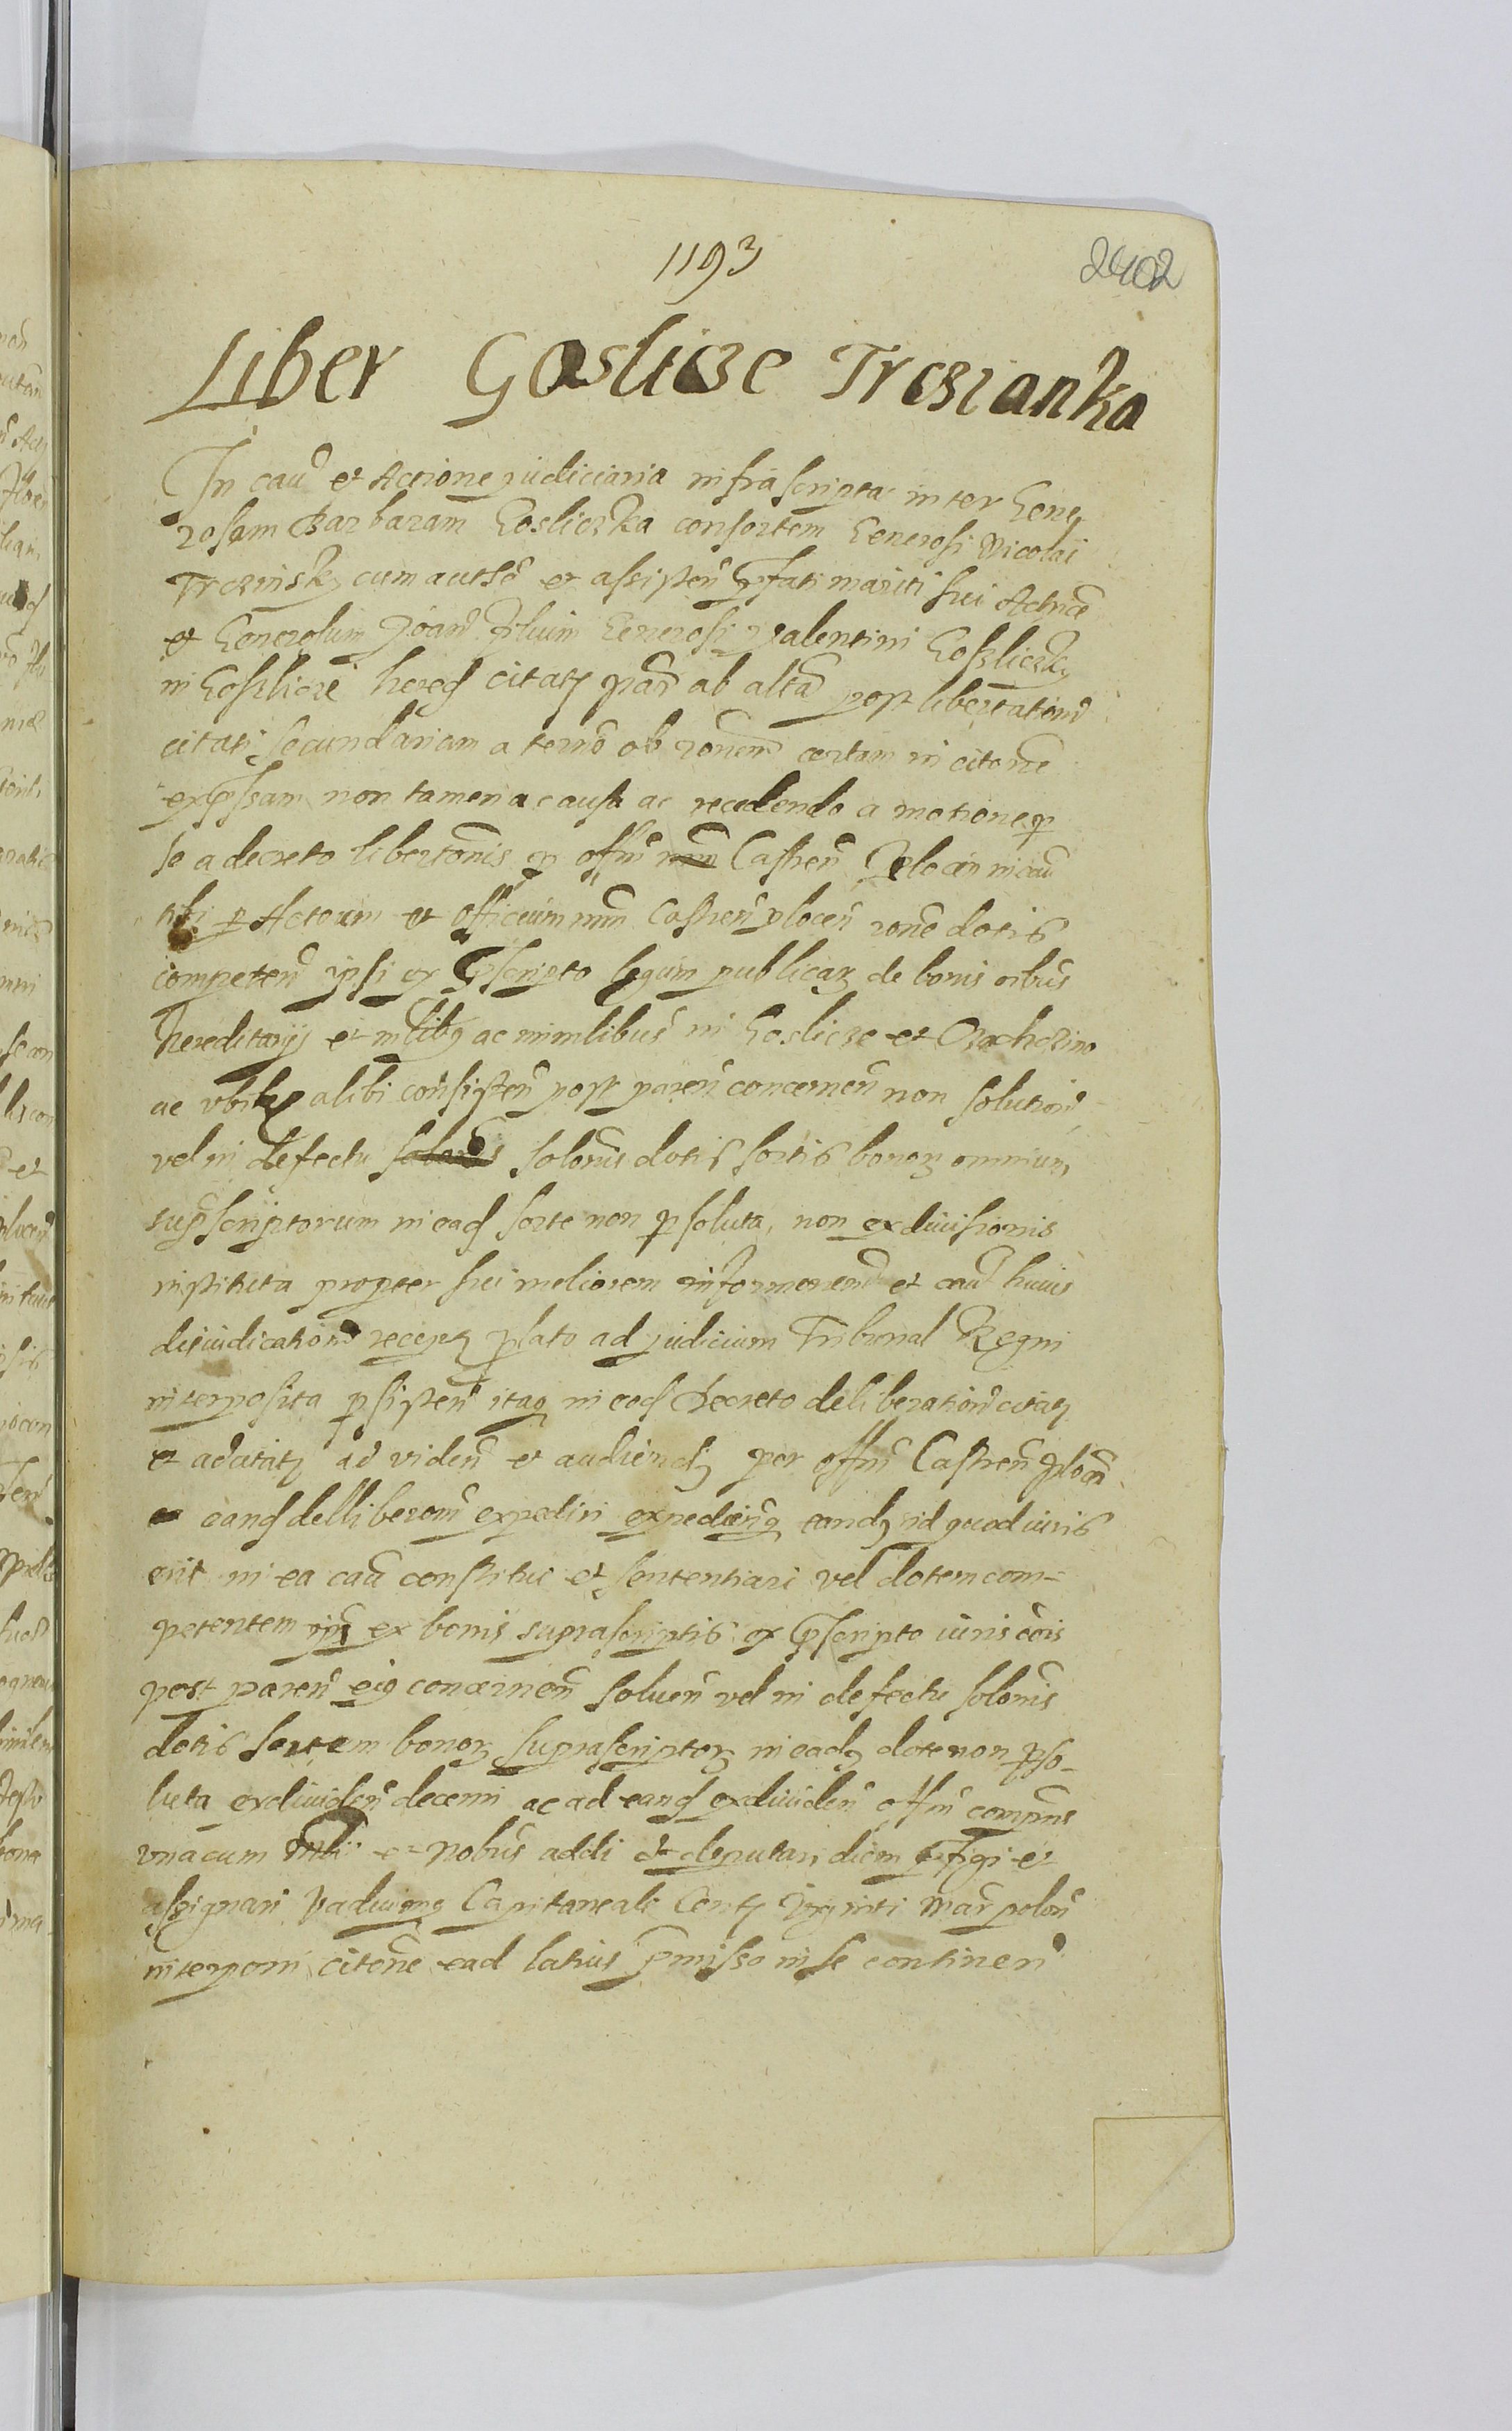 1193
2402
Liber Goslicze Trczianka
In cau et Actione judiciaria infrascripta inter Gene
rosam Barbaram Gosliczka consortem Generosi Nicolai
Trczinsky cum autho et assisten pfati mariti sui Actrice
et Generosum Joan filium Generosi Valentini Goszliczky
in Goszlicze hered citatq par ab alta post libertation
citati secundariam a termo ob ronem certam in citone
expssam non tamen a causa ac recedendo a motione p
se a decreto libertonis p offm Castren Plocen in cau
tibi p Actorum et officium nrm Castren plocen rone dotis
competen ipsi ex pscripto legum publicaz de bonis oibus
hereditarijs et mlibq ac immlibus in Goslicze et
ac vbilz alibi consisten post paren concernen non solution
vel in defectu solonis dotis sortis bonoz omnium
supscriptorum in ead sorte non psoluta, non exdiuisionis
instituta propter sui meliorem informonem et cau huius
diiudication recept plato ad judicium Tribunal Regni
interposita psisten itaq in eod decreto deliberation citatq
et adcitatq ad viden et audiendq per offm Castren plocen
eand delliberom expediri expedienq tandq id quod iuris
erit in ea cau constitui et sententiari vel dotem com-
petentem ipsi ex bonis suprascriptis ex pscripto iuris cois
post paren eiq concernen soluen vel in defectu solonis
dotis sortem bonoz suprascriptoz in eadq dote non pso-
luta exdiuiden decerni ac ad eand exdiuiden offm compns
vnacum et nobus addi et deputari, diem pfigi et
assignari Vadiumq Capitaneale Centq viginti mar polon
interponi citone ead latius pmisso in se continen